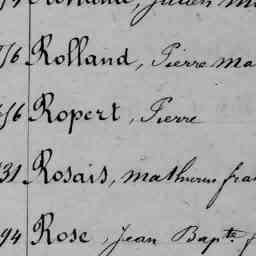 Rolland, Pierre Ma
Ropert, Pierre
31 Rosais, Mathurin fra
94 Rose, Jean Bapte f